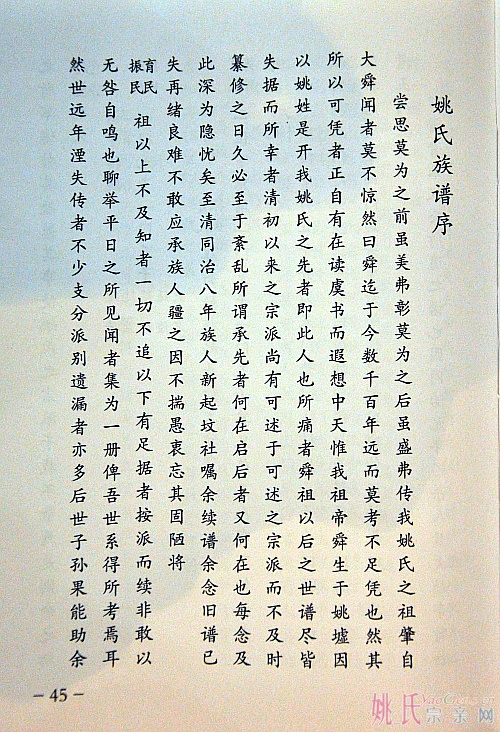 姚氏族谱序
尝思莫为之前虽美弗彰莫为之后虽盛弗传我姚氏之祖肇自
大舜闻者莫不惊然曰舜迄于今数千百年远而莫考不足凭也然其
所以可凭者正自有在读虞书而遐想中天惟我祖帝舜生于姚墟因
以姚姓是开我姚氏之先者即此人也所痛者舜祖以后之世谱尽皆
失据而所幸者清初以来之宗派尚有可述于可述之宗派而不及时
纂修之日久必至于紊乱所谓承先者何在启后者又何在也每念及
此深为隐忧矣至清同治八年族人新起坟社嘱余续谱余念旧谱已
失再绪良难不敢应承族人疆之因不揣愚衷忘其固陋将
育民振民祖以上不及知者一切不追以下有足据者按派而续非敢以
无咎自鸣也聊举平日之所见闻者集为一册俾吾世系得所考焉耳
然世远年湮失传者不少支分派别遗漏者亦多后世子孙果能助余
－45－
姚氏宗亲网